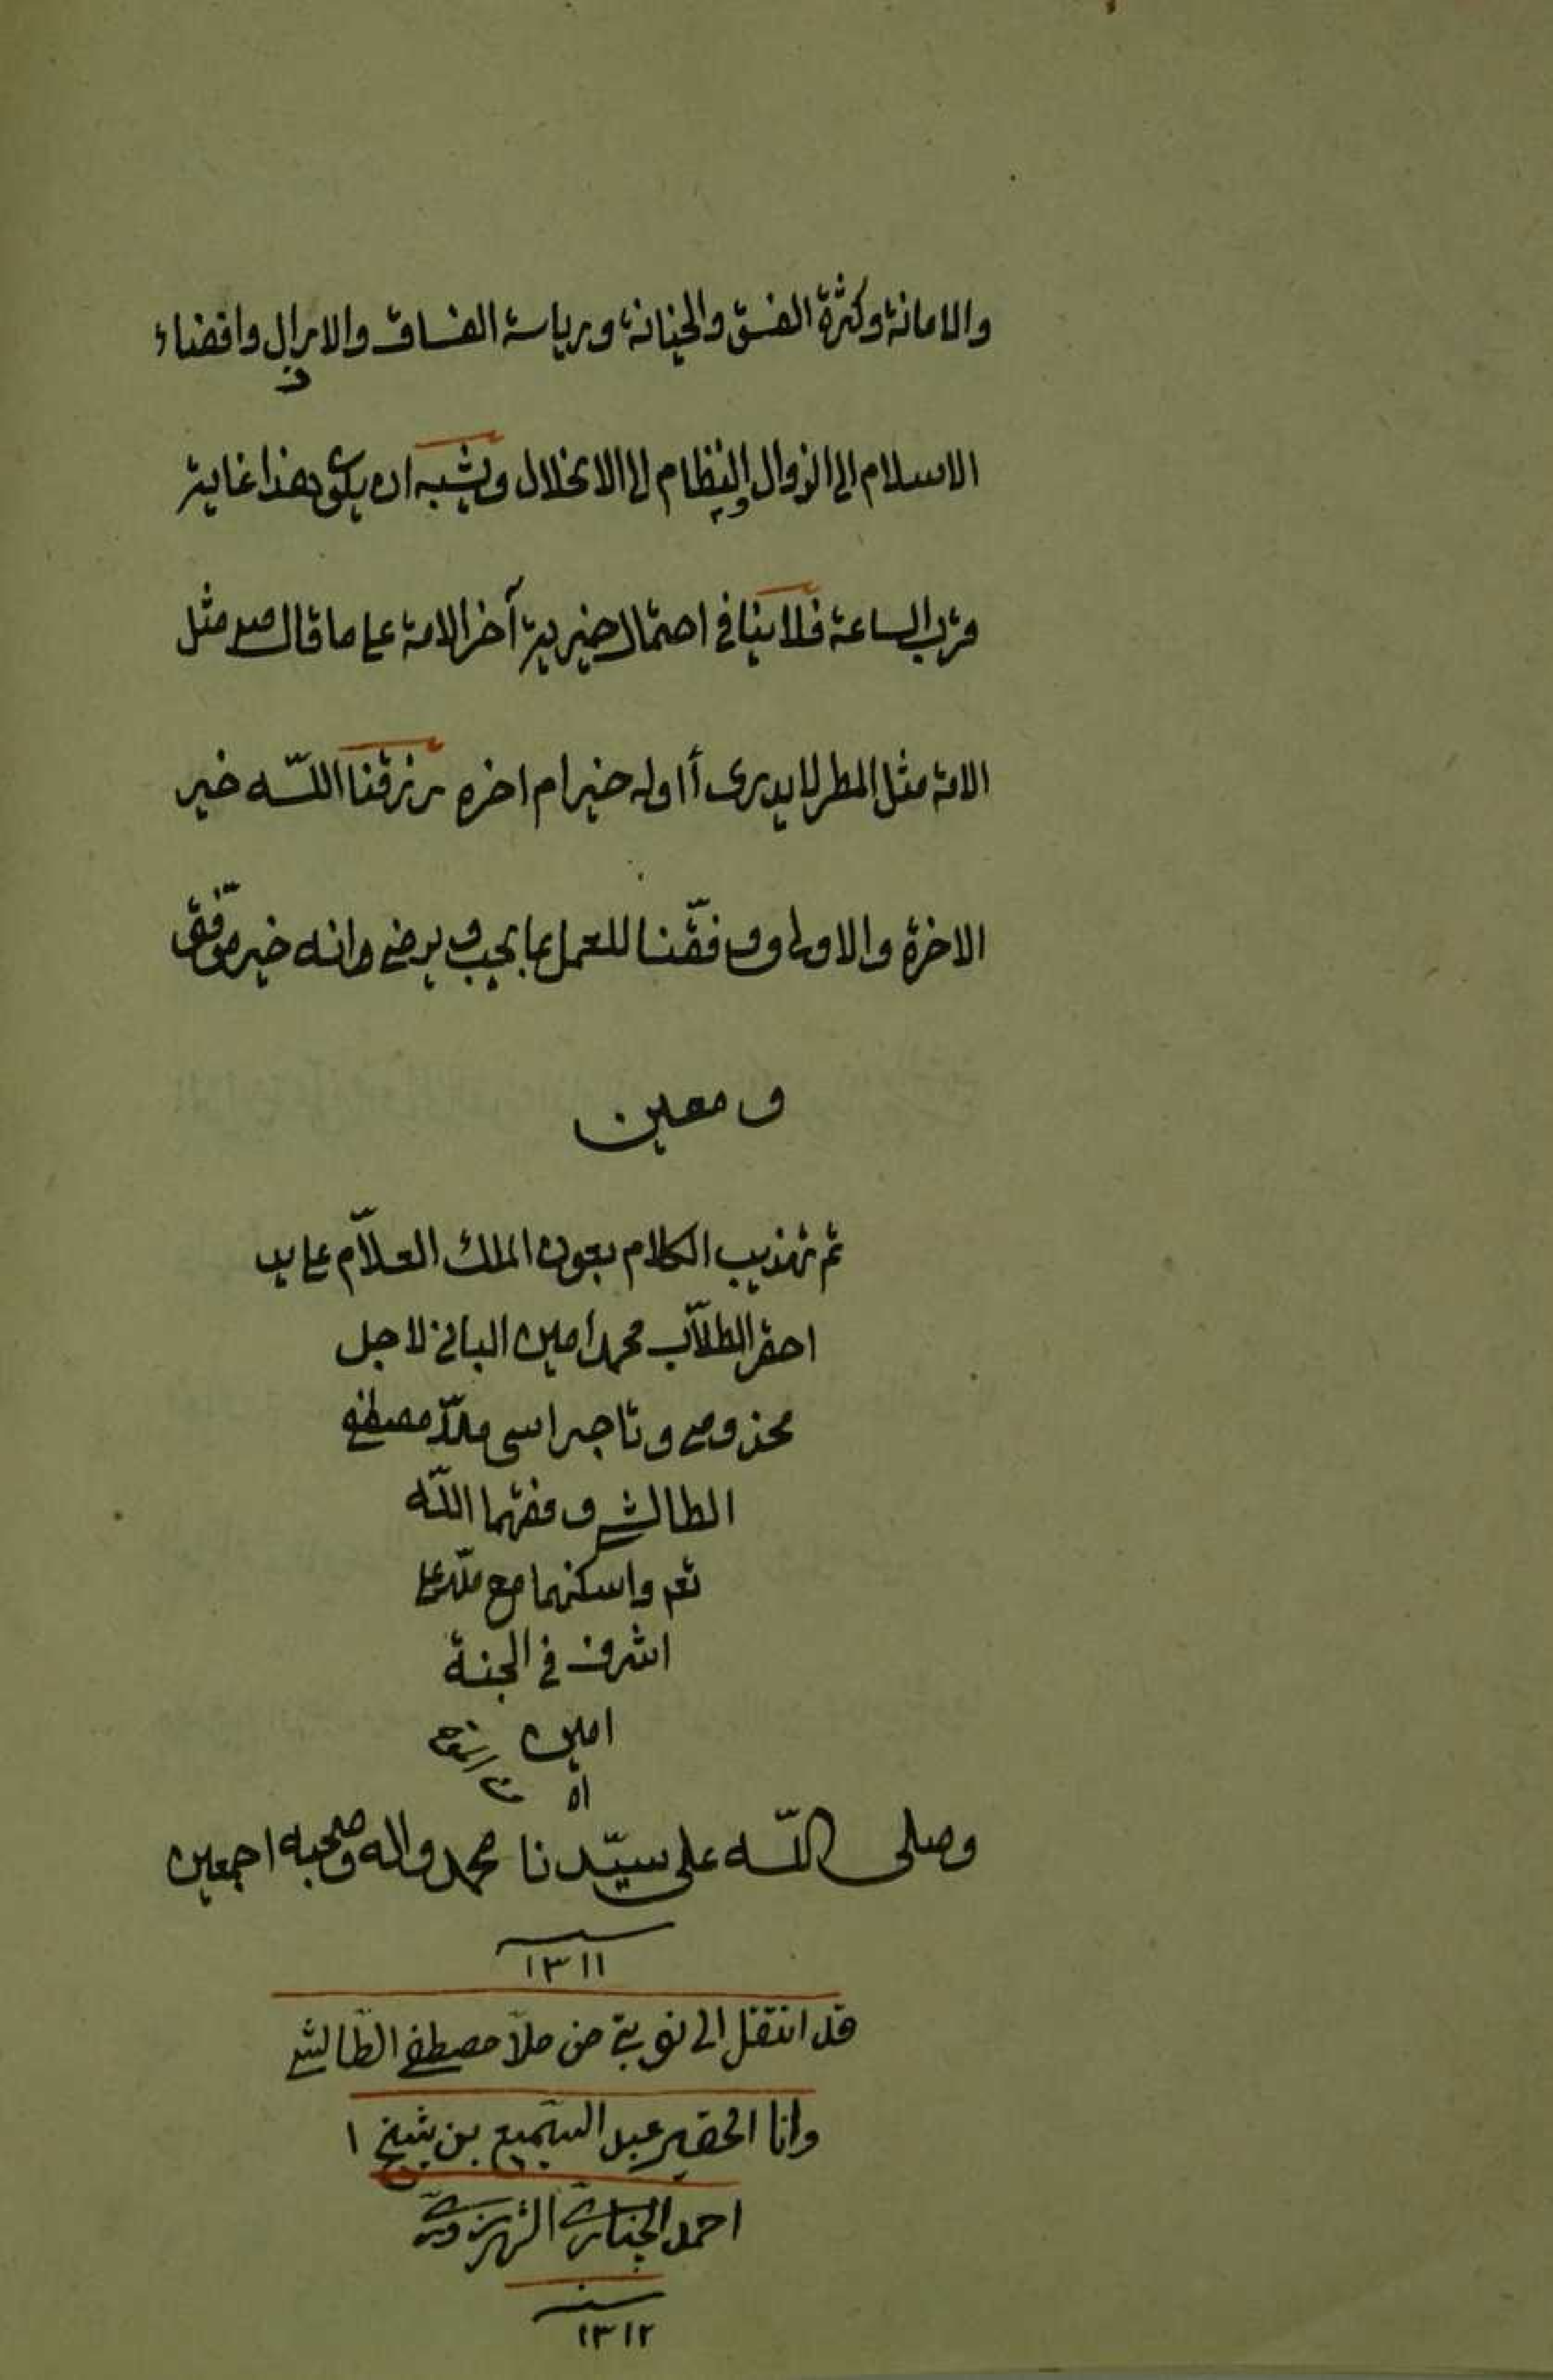 والامانة وكثرة الفسق والخيانة ورياسة الفساق والارذال وافضاء
الاسلام الى الزوال والنظام الى الانحلال ويشبه ان يكون هذا غاية
قرب الساعة فلا ينافي احتمال خيرية آخر الامة على ما قال صلعم مثل
الامة مثل المطر لا يدرى أ اوله خير ام اخره رزقنا اللّه خير
الاخرة والاولى ووفّقنا للعمل بما يحب ويرضى وانه خير موفّق
ومعين
تم تهذيب الكلام بعون الملك العلاّم على يد
احقر الطلاّب محمد امين البانى لاجل
مخدومى وتاجراسى ملاّ مصطفى
الطالشى وفقهما اللّه
تعم واسكنهما مع ملّا على
اشرف في الجنة
امين
اه
وصلى اللّه على سيّدنا محمد واله وصحبه اجمعين
١٣١١
قد انتقل الى نوبتي من ملاّ مصطفى الطالشى
وانا الحقير عبد السّميع بن شيخ ١
احمد الجنارىّ الشهرزورىّ
سنة
١٣١٢